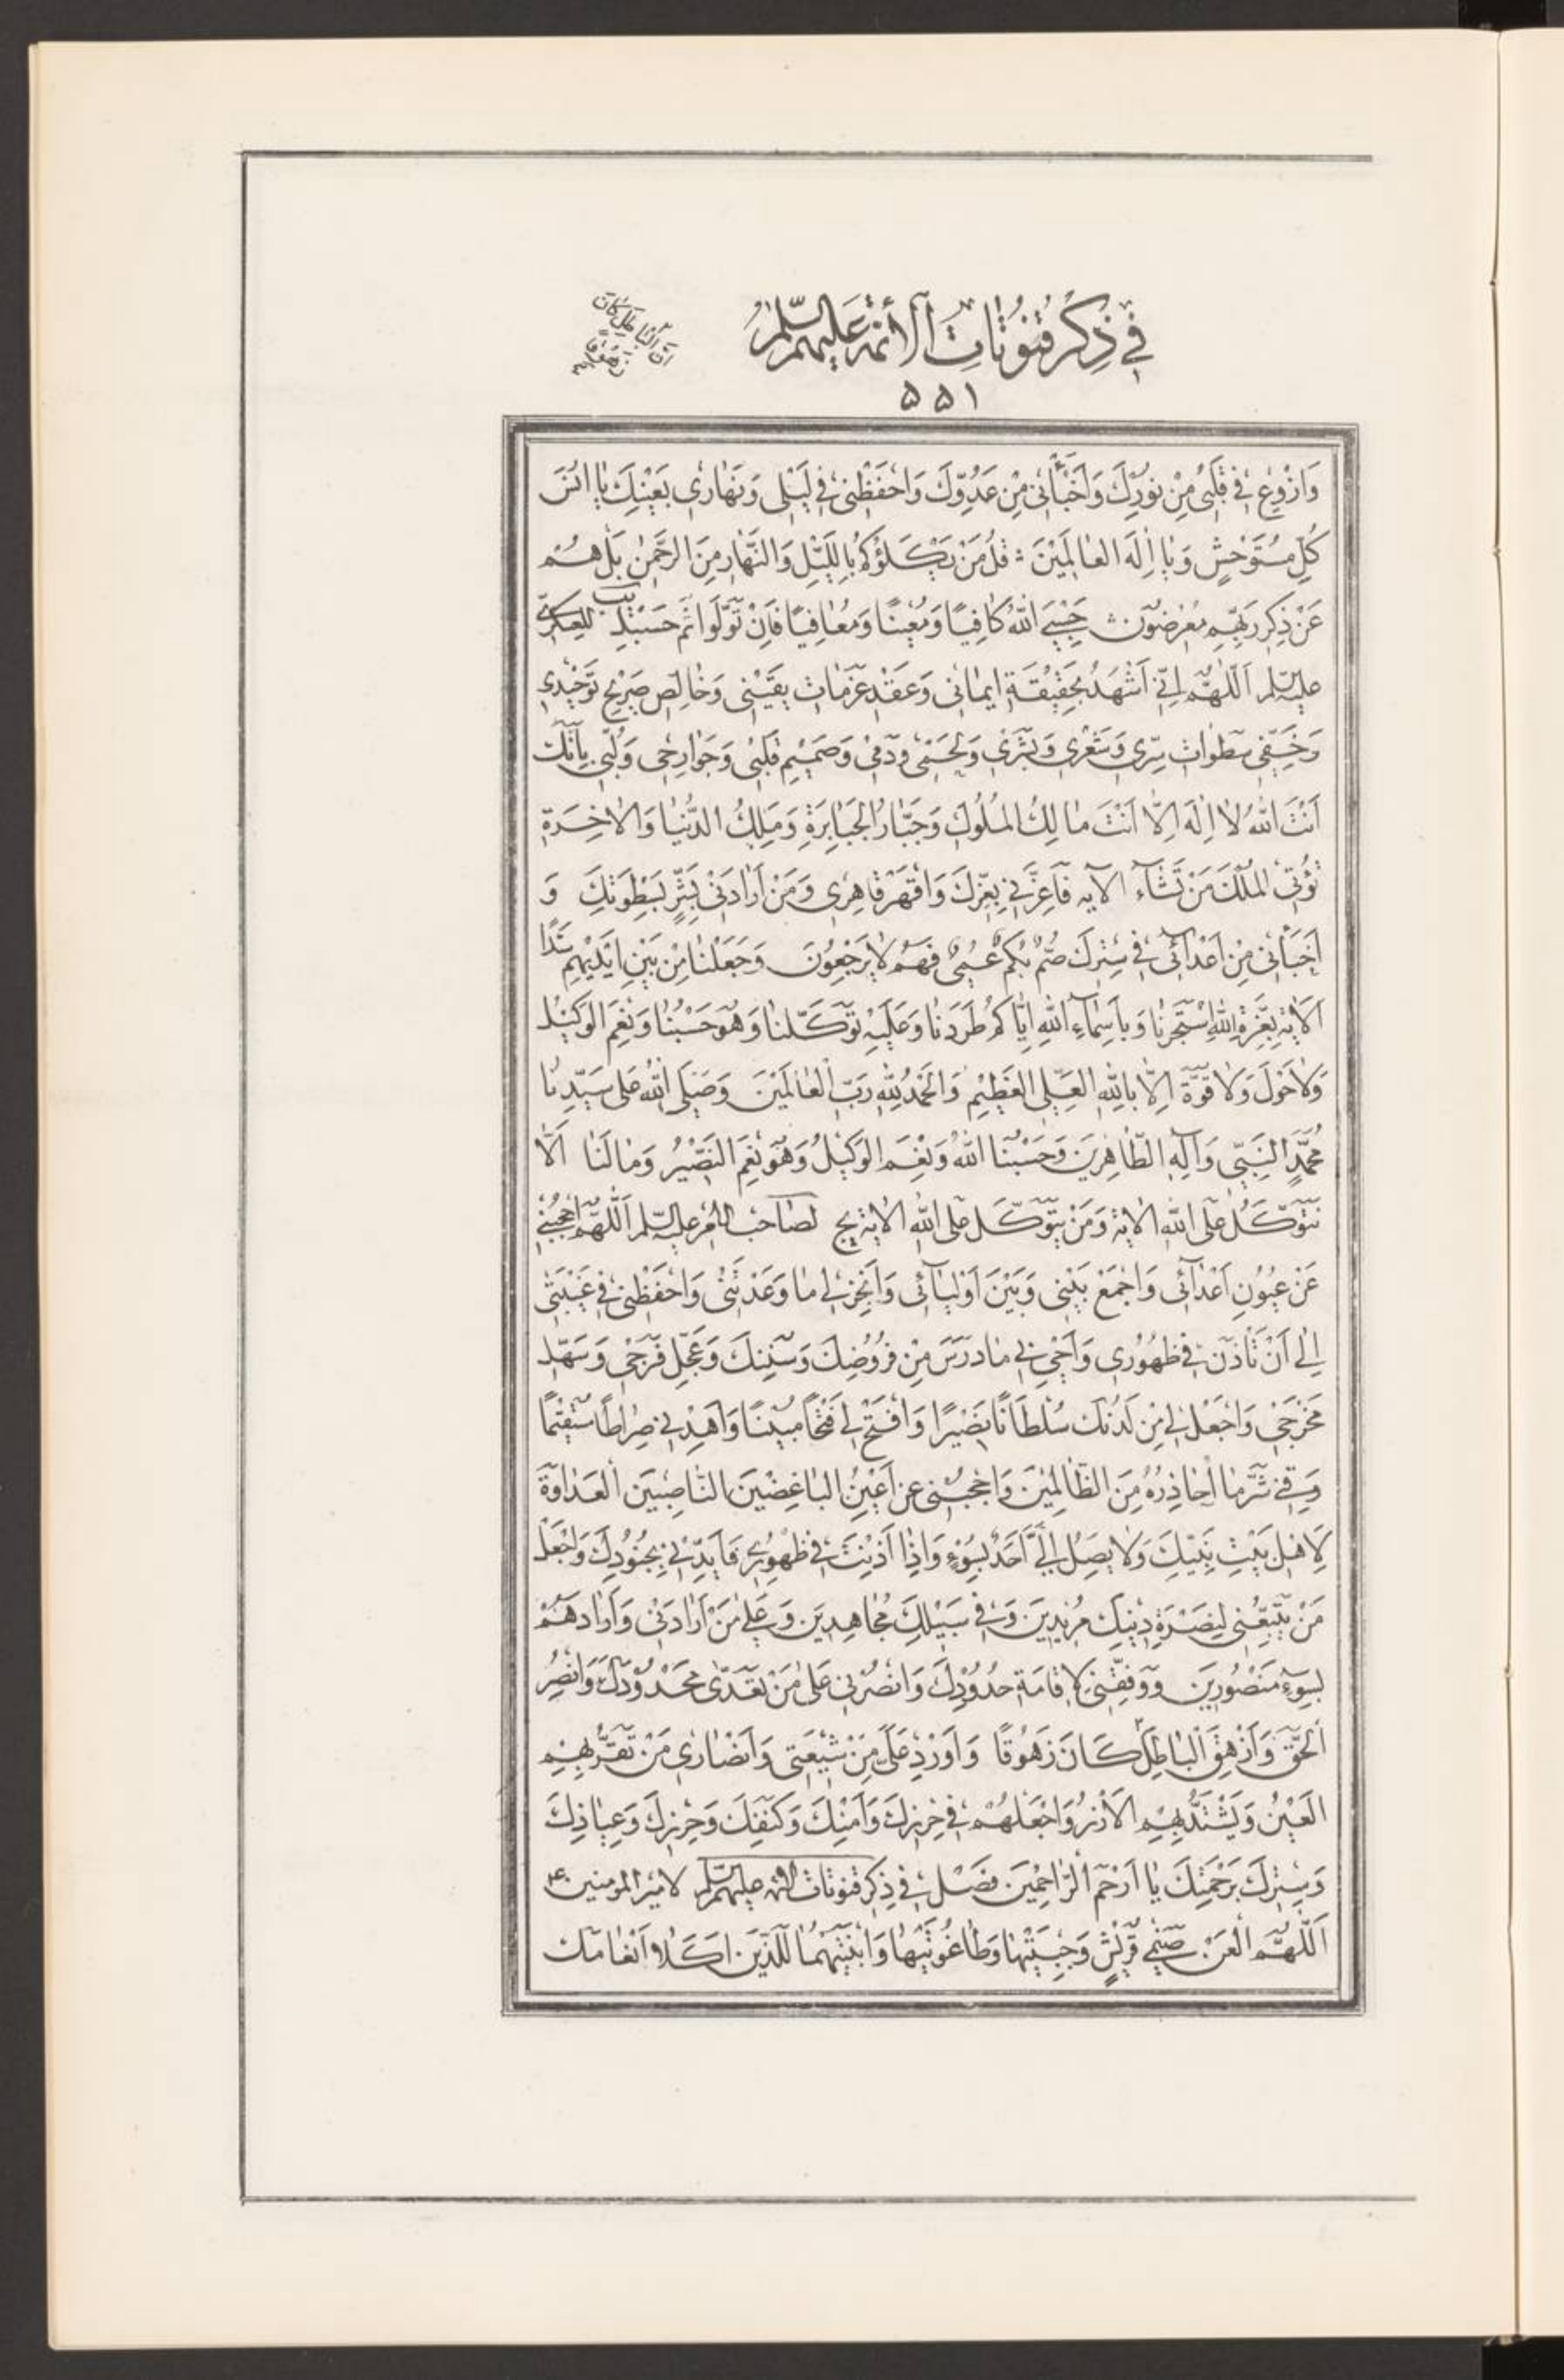 فِي ذِكْرِ قُنُوتَاتِ الْأَئِمَّةِ عَلَيْهِمُ السَّلَامُ
اَنَّ الْبَاطِلَ كَانَ
زَهُوقًا
۵۵۱
وَازْرَعْ فِي قَلْبِي مِنْ نُورِكَ وَاَخْبَأْنِي مِنْ عَدُوِّكَ وَاحْفَظْنِي فِي لَيْلِي وَنَهَارِي بِعَيْنِكَ يَا اُنْسَ
كُلِّ مُسْتَوْحِشٍ وَيَا اِلٰهَ الْعَالَمِينَ ؞ قُلْ مَنْ يَكْلَؤُكُمْ بِاللَّيْلِ وَالنَّهَارِ مِنَ الرَّحْمٰنِ بَلْ هُمْ
عَنْ ذِكْرِ رَبِّهِمْ مُعْرِضُونَ ؞ حَسْبِيَ اللّٰهُ كَافِيًا وَمُعِينًا وَمُعَافِيًا فَاِنْ تَوَلَّوْا ثم حَسْبِيَ يب للعسكري
عليه السلم اَللّٰهُمَّ اِنِّي اَشْهَدُ بِحَقِيقَةِ اِيمَانِي وَعَقْدِ عَزَمَاتِ يَقِينِي وَخَالِصِ صَرِيحِ تَوْحِيدِي
وَخَفِيِّ سَطَوَاتِ سِرِّي وَشَعْرِي وَبَشَرِي وَلَحْمِي وَدَمِي وَصَمِيمِ قَلْبِي وَجَوَارِحِي وَلُبِّي بِاَنَّكَ
اَنْتَ اللّٰهُ لَا اِلٰهَ اِلَّا اَنْتَ مَالِكُ الْمُلُوكِ وَجَبَّارُ الْجَبَابِرَةِ وَمَلِكُ الدُّنْيَا وَالْاٰخِرَةِ
تُؤْتِي الْمُلْكَ مَنْ تَشَآءُ الآيه فَاَعِزَّنِي بِعِزِّكَ وَاقْهَرْ قَاهِرِي وَمَنْ اَرَادَنِي بِشَرٍّ بِسَطْوَتِكَ وَ
اَخْبَأْنِي مِنْ اَعْدَآئِي فِي سِتْرِكَ صُمٌّ بُكْمٌ عُمْيٌ فَهُمْ لَا يَرْجِعُونَ وَجَعَلْنَا مِنْ بَيْنِ اَيْدِيهِمْ سَدًّا
الْاٰيَةَ بِعِزَّةِ اللّٰهِ اسْتَجَرْنَا وَبِاَسْمَآءِ اللّٰهِ اِيَّاكُمْ طَرَدْنَا وَعَلَيْهِ تَوَكَّلْنَا وَهُوَ حَسْبُنَا وَنِعْمَ الْوَكِيلُ
وَلَا حَوْلَ وَلَا قُوَّةَ اِلَّا بِاللّٰهِ الْعَلِيِّ الْعَظِيمِ وَالْحَمْدُ لِلّٰهِ رَبِّ الْعَالَمِينَ وَصَلَّى اللّٰهُ عَلَى سَيِّدِنَا
مُحَمَّدٍ النَّبِيِّ وَاٰلِهِ الطَّاهِرِينَ وَحَسْبُنَا اللّٰهُ وَنِعْمَ الْوَكِيلُ وَهُوَ نِعْمَ النَّصِيرُ وَمَا لَنَا اَلَّا
نَتَوَكَّلَ عَلَى اللّٰهِ الْاٰيَةَ وَمَنْ يَتَوَكَّلْ عَلَى اللّٰهِ الْاٰيَةَ يج لِصَاحِبِ الْاَمْرِ عليه السلم اَللّٰهُمَّ احْجُبْنِي
عَنْ عُيُونِ اَعْدَآئِي وَاجْمَعْ بَيْنِي وَبَيْنَ اَوْلِيَآئِي وَاَنْجِزْ لِي مَا وَعَدْتَنِي وَاحْفَظْنِي فِي غَيْبَتِي
اِلٰى اَنْ تَأْذَنَ فِي ظُهُورِي وَاَحْيِ بِي مَا دَرَسَ مِنْ فُرُوضِكَ وَسُنَنِكَ وَعَجِّلْ فَرَجِي وَسَهِّلْ
مَخْرَجِي وَاجْعَلْ لِي مِنْ لَدُنْكَ سُلْطَانًا نَصِيرًا وَافْتَحْ لِي فَتْحًا مُبِينًا وَاهْدِنِي صِرَاطًا مُسْتَقِيمًا
وَقِنِي شَرَّ مَا اُحَاذِرُهُ مِنَ الظَّالِمِينَ وَاحْجُبْنِي عن اَعْيُنِ الْبَاغِضِينَ النَّاصِبِينَ الْعَدَاوَةَ
لِاَهْلِ بَيْتِ نَبِيِّكَ وَلَا يَصِلُ اِلَيَّ اَحَدٌ بِسُوءٍ وَاِذَا اَذِنْتَ فِي ظُهُورِي فَاَيِّدْنِي بِجُنُودِكَ وَاجْعَلْ
مَنْ يَتَّبِعُنِي لِنُصْرَةِ دِينِكَ مُرِيدِينَ وَفِي سَبِيلِكَ مُجَاهِدِينَ وَعَلَى مَنْ اَرَادَنِي وَاَرَادَهُمْ
بِسُوءٍ مَنْصُورِينَ وَوَفِّقْنِي لِاِقَامَةِ حُدُودِكَ وَانْصُرْنِي عَلَى مَنْ تَعَدّٰى مَحْدُودَكَ وَانْصُرِ
الْحَقَّ وَاَزْهِقِ الْبَاطِلَ كَانَ زَهُوقًا وَاَوْرِدْ عَلَيَّ مِنْ شِيعَتِي وَاَنْصَارِي مَنْ تَقَرُّ بِهِمِ
الْعَيْنُ وَيَشْتَدُّ بِهِمِ الْاَزْرُ وَاجْعَلْهُمْ فِي حِرْزِكَ وَاَمْنِكَ وَكَنَفِكَ وَحِرْزِكَ وَعِيَاذِكَ
وَسِتْرِكَ بِرَحْمَتِكَ يَا اَرْحَمَ الرَّاحِمِينَ فَصْلٌ فِي ذِكْرِ قُنُوتَاتِ الائمه عليهم السلم لامير المومنين ع
اَللّٰهُمَّ الْعَنْ صَنَمَيْ قُرَيْشٍ وَجِبْتَيْهَا وَطَاغُوتَيْهَا وَابْنَتَيْهِمَا اللَّذَيْنِ اَكَلَا اَنْعَامَكَ